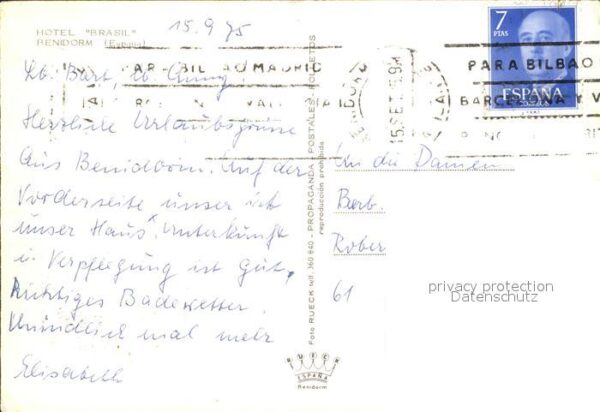 HOTEL "BRASIL"
BENIDORM (España)
15.9.75
7
PTAS
ESPAÑA
CORREOS
PARA BILBAO
BARCELONA Y V
AR-BIL AO MADRID
15 SET
Lb. Barb, lb.
Herzliche Urlaubsgrüsse
aus Benidorm. Auf der
Vorderseite unser ist
unser Haus. Unterkunft
u. Verpflegung ist Gut,
Richtiges Badewetter.
Mündlich mal mehr
Elisabeth
Foto RUECK telf. 360 840 - PROPAGANDA - POSTALES - FOLLETOS
reproducción prohibida
RUECK
ESPAÑA
Benidorm
An die Damen
Barb.
Rober
61
privacy protection
Datenschutz